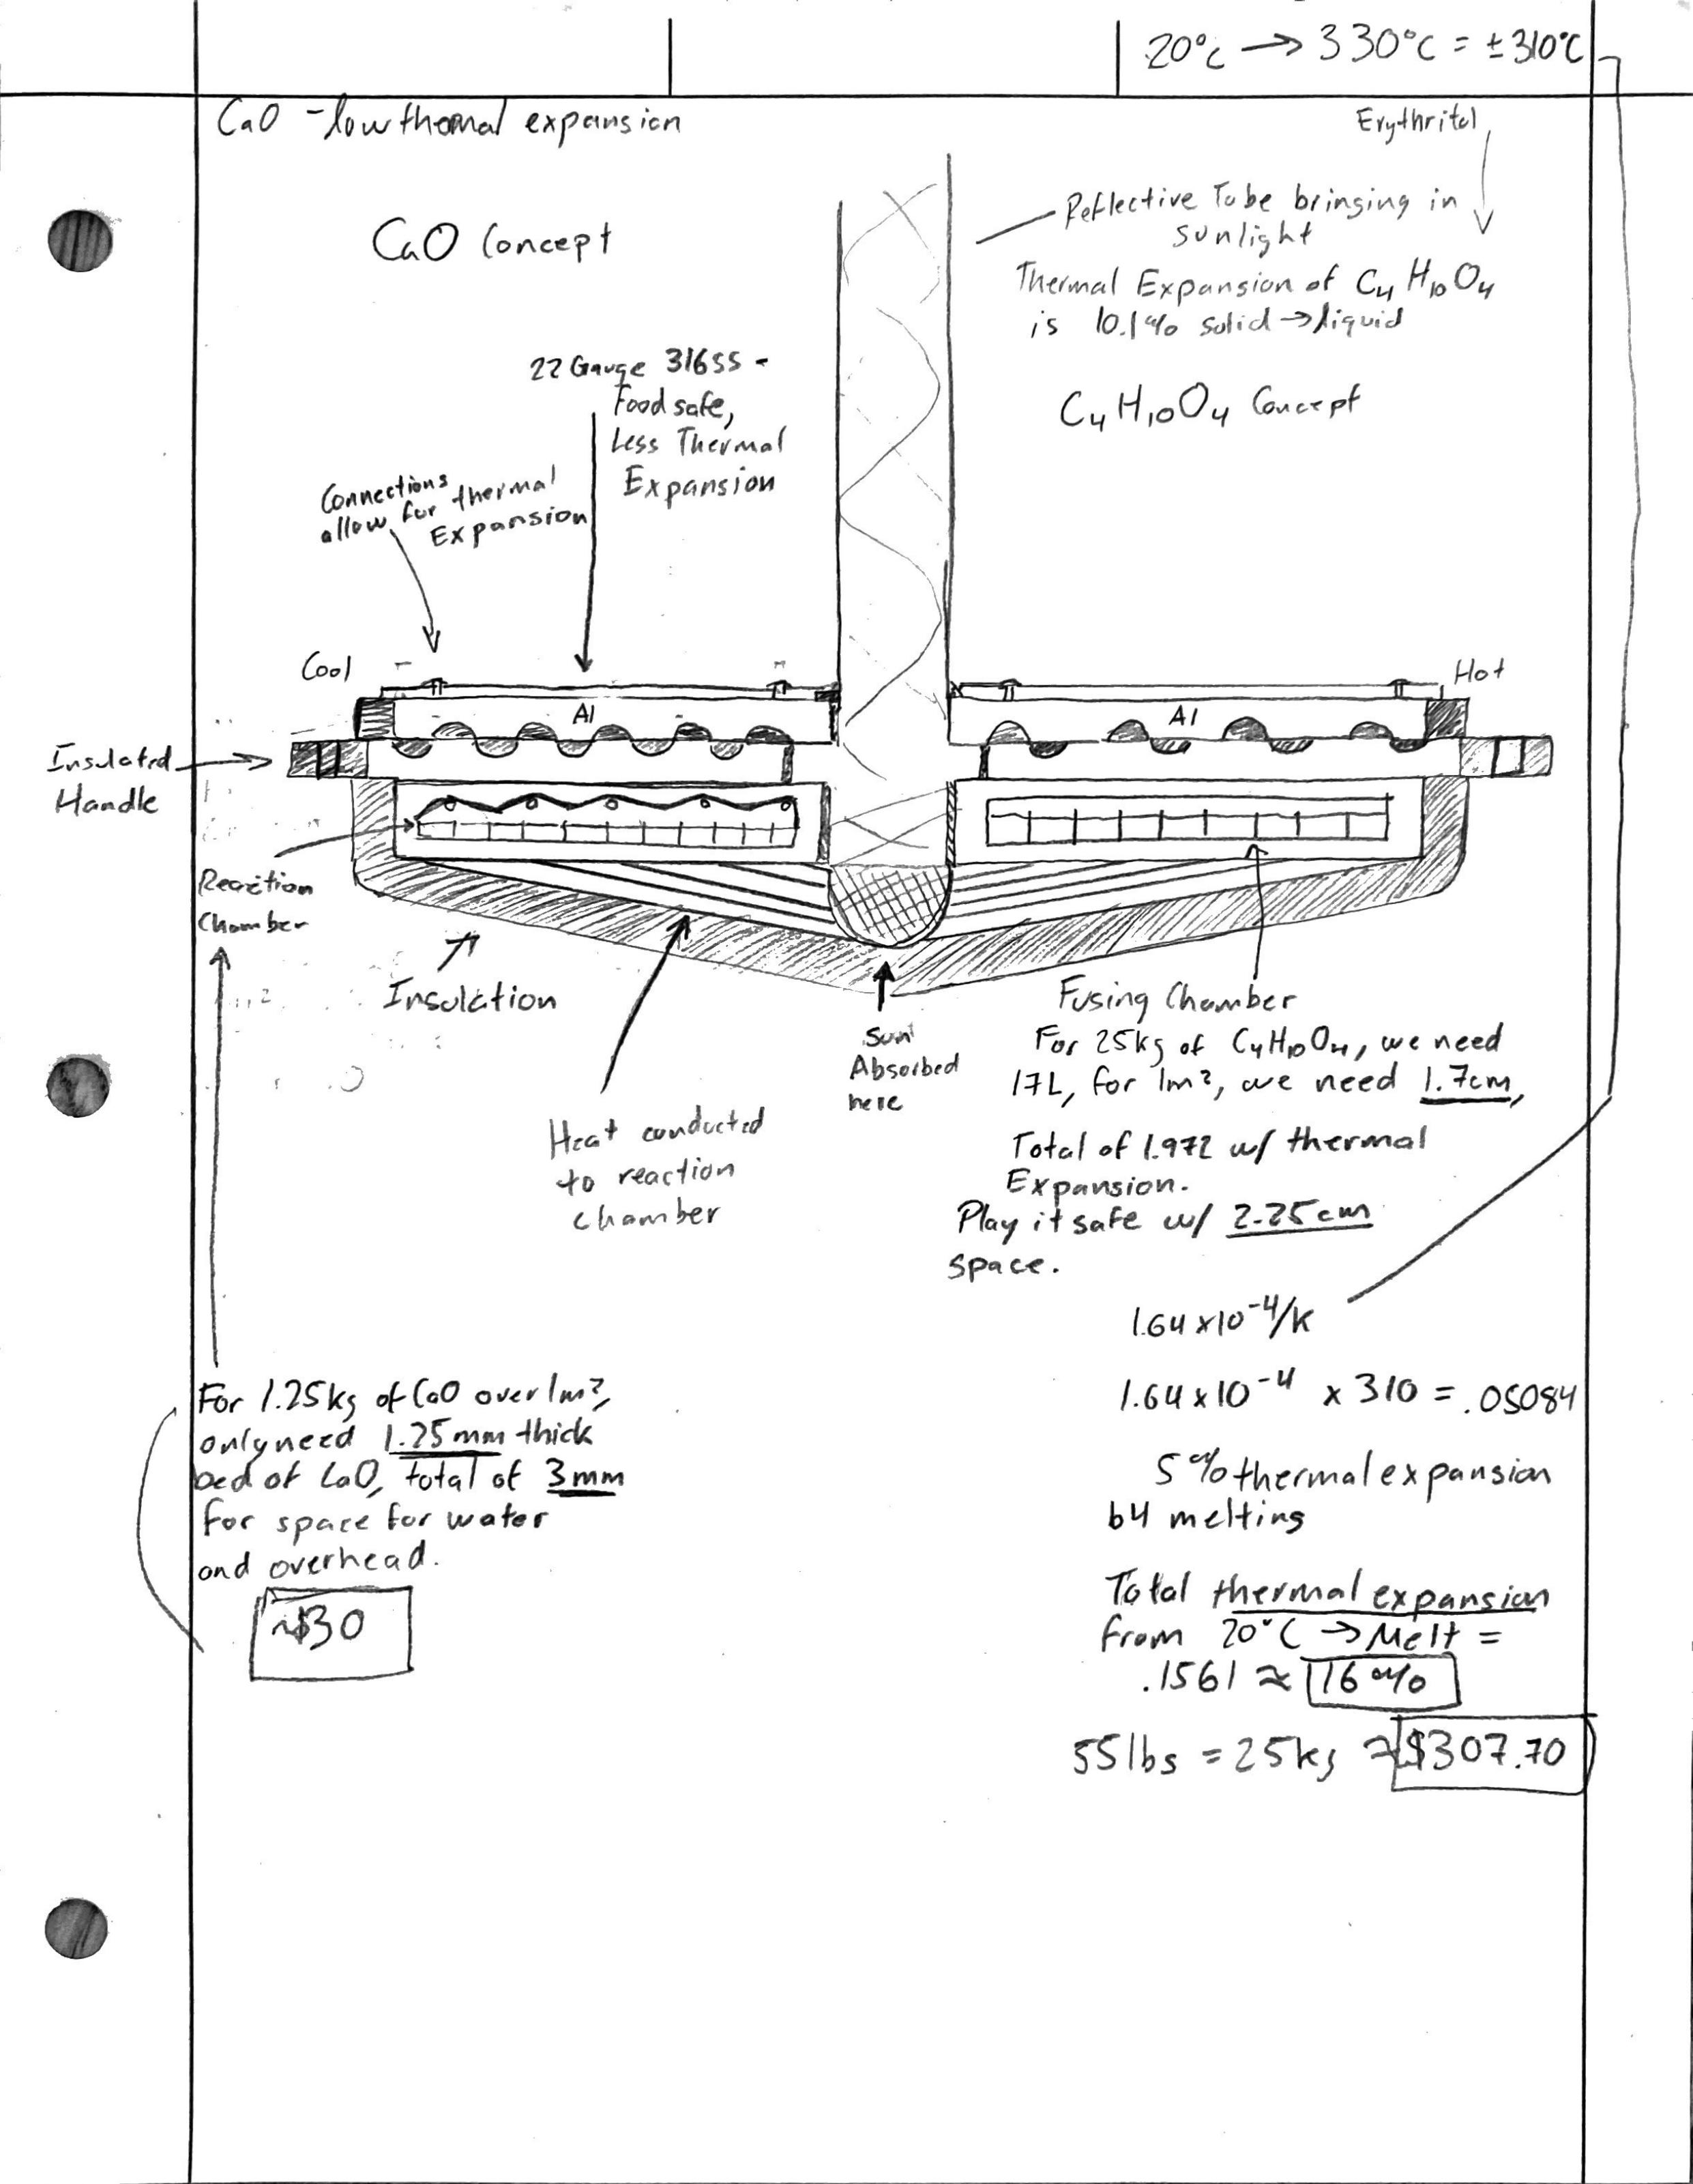 20°C → 330°C = ±310°C
CaO - low thermal expansion
Erythritol
Reflective Tube bringing in
sunlight
CaO Concept
Thermal Expansion of C4H10O4
is 10.1% solid → liquid
22 Gauge 316SS -
Food safe,
Less Thermal
Expansion
C4H10O4 Concept
Connections
allow for thermal
Expansion
Cool
Hot
Al
Al
Insulated
Handle
Reaction
Chamber
Insulation
Heat conducted
to reaction
chamber
Sun
Absorbed
here
Fusing Chamber
For 25kg of C4H10O4, we need
17L, for 1m², we need 1.7cm,
Total of 1.972 w/ thermal
Expansion.
Play it safe w/ 2.25cm
space.
1.64 x 10^-4/K
1.64 x 10^-4 x 310 = .05084
5% thermal expansion
b4 melting
Total thermal expansion
from 20°C → Melt =
.1561 ≈ 16%
55lbs = 25kg ≈ $307.70
For 1.25kg of CaO over 1m²,
only need 1.25mm thick
bed of CaO, total of 3mm
for space for water
and overhead.
~$30